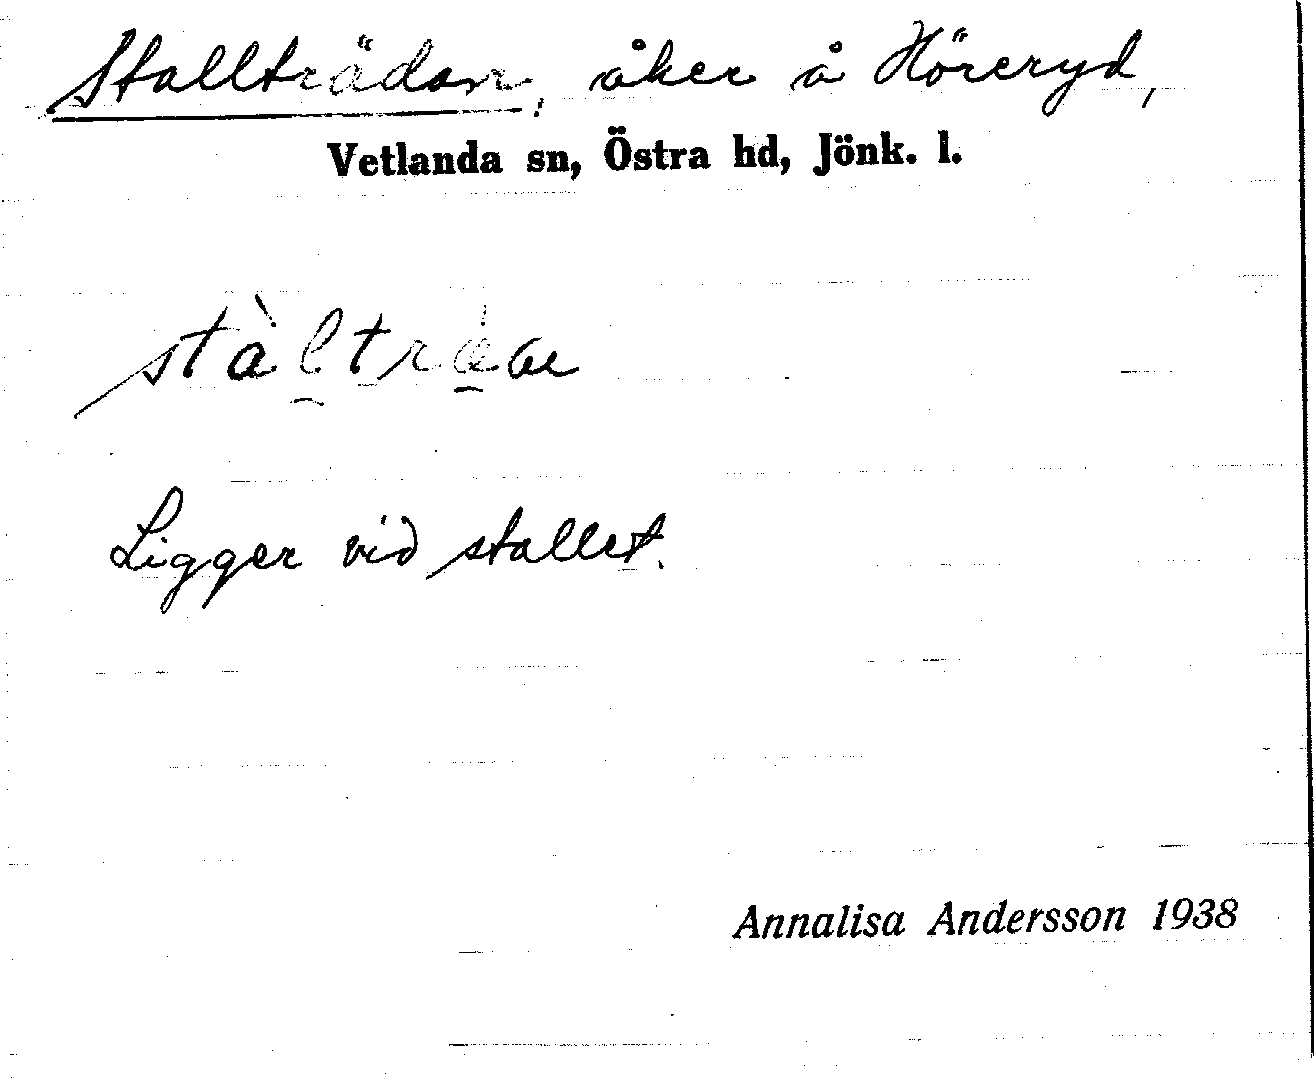 Stallträdan, åker å Höreryd,
Vetlanda sn, Östra hd, Jönk. l.
Ligger vid stallet.
Annalisa Andersson 1938